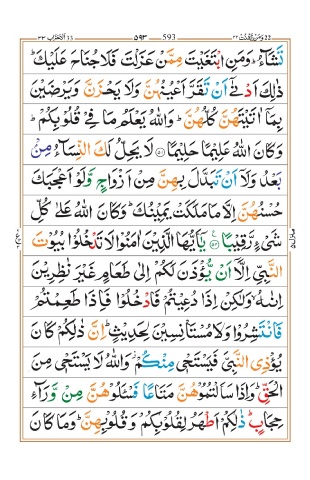 ومن يقنت ٢٢ ٥٩٣ 593 الاحزاب ٣٣
تَشَآءُ ؕ وَمَنِ ابْتَغَيْتَ مِمَّنْ عَزَلْتَ فَلَا جُنَاحَ عَلَيْكَ ؕ
ذٰلِكَ اَدْنٰۤى اَنْ تَقَرَّ اَعْيُنُهُنَّ وَلَا يَحْزَنَّ وَيَرْضَيْنَ
بِمَاۤ اٰتَيْتَهُنَّ كُلُّهُنَّ ؕ وَاللّٰهُ يَعْلَمُ مَا فِيْ قُلُوْبِكُمْ ؕ
وَكَانَ اللّٰهُ عَلِيْمًا حَلِيْمًا ۟﴿۵۱﴾ لَا يَحِلُّ لَكَ النِّسَآءُ مِنْۢ
بَعْدُ وَلَاۤ اَنْ تَبَدَّلَ بِهِنَّ مِنْ اَزْوَاجٍ وَّلَوْ اَعْجَبَكَ
حُسْنُهُنَّ اِلَّا مَا مَلَكَتْ يَمِيْنُكَ ؕ وَكَانَ اللّٰهُ عَلٰى كُلِّ
شَيْءٍ رَّقِيْبًا ۟﴿۵۲﴾ يٰۤاَيُّهَا الَّذِيْنَ اٰمَنُوْا لَا تَدْخُلُوْا بُيُوْتَ
النَّبِيِّ اِلَّاۤ اَنْ يُّؤْذَنَ لَكُمْ اِلٰى طَعَامٍ غَيْرَ نٰظِرِيْنَ
اِنٰىهُ ۙ وَلٰكِنْ اِذَا دُعِيْتُمْ فَادْخُلُوْا فَاِذَا طَعِمْتُمْ
فَانْتَشِرُوْا وَلَا مُسْتَاْنِسِيْنَ لِحَدِيْثٍ ؕ اِنَّ ذٰلِكُمْ كَانَ
يُؤْذِى النَّبِيَّ فَيَسْتَحْيٖ مِنْكُمْ ؗ وَاللّٰهُ لَا يَسْتَحْيٖ مِنَ
الْحَقِّ ؕ وَاِذَا سَاَلْتُمُوْهُنَّ مَتَاعًا فَسْـَٔلُوْهُنَّ مِنْ وَّرَآءِ
حِجَابٍ ؕ ذٰلِكُمْ اَطْهَرُ لِقُلُوْبِكُمْ وَقُلُوْبِهِنَّ ؕ وَمَا كَانَ